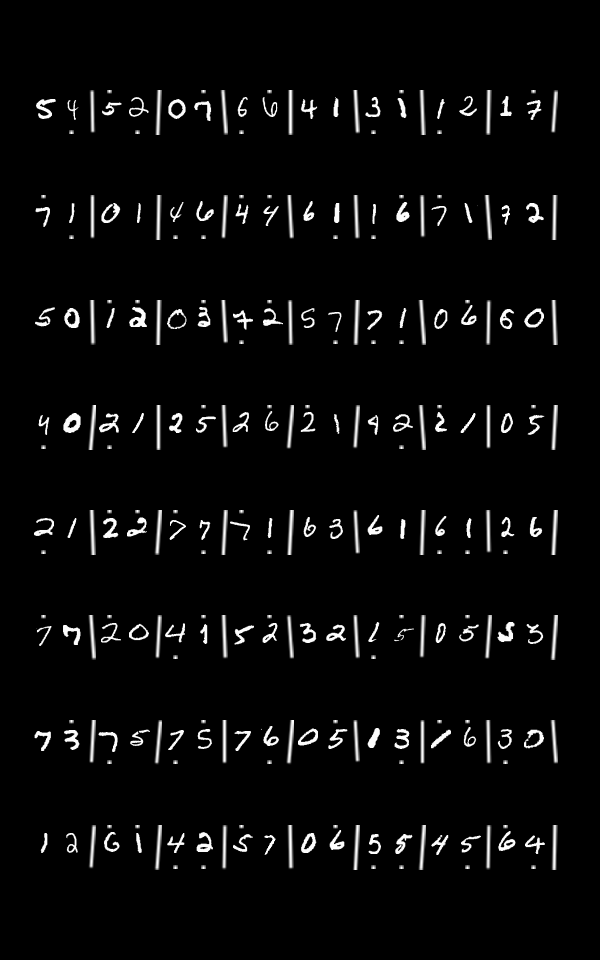 5 4 | 5 2 | 0 7 | 6 6 | 4 1 | 3 1 | 1 2 | 1 7 |
7 1 | 0 1 | 4 6 | 4 4 | 6 1 | 1 6 | 7 1 | 7 2 |
5 0 | 1 2 | 0 3 | 7 2 | 5 7 | 7 1 | 0 6 | 6 0 |
4 0 | 2 1 | 2 5 | 2 6 | 2 1 | 4 2 | 2 1 | 0 5 |
2 1 | 2 2 | 7 7 | 7 1 | 6 3 | 6 1 | 6 1 | 2 6 |
7 7 | 2 0 | 4 1 | 5 2 | 3 2 | 1 5 | 0 5 | 5 3 |
7 3 | 7 5 | 7 5 | 7 6 | 0 5 | 1 3 | 1 6 | 3 0 |
1 2 | 6 1 | 4 2 | 5 7 | 0 6 | 5 5 | 4 5 | 6 4 |